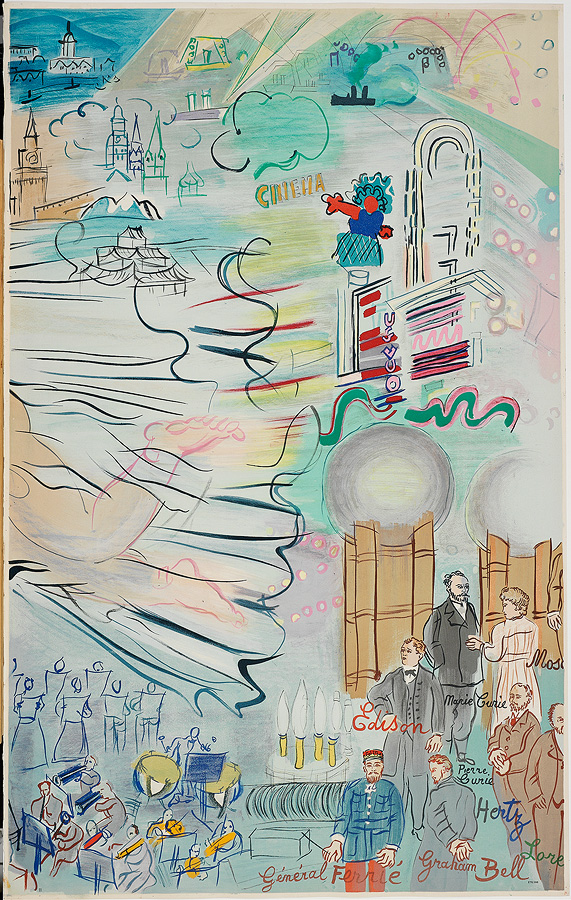 CINEMA
Mos
Marie Curie
Edison
Pierre
Curie
Hertz
Lore
Général Ferrié
Graham Bell